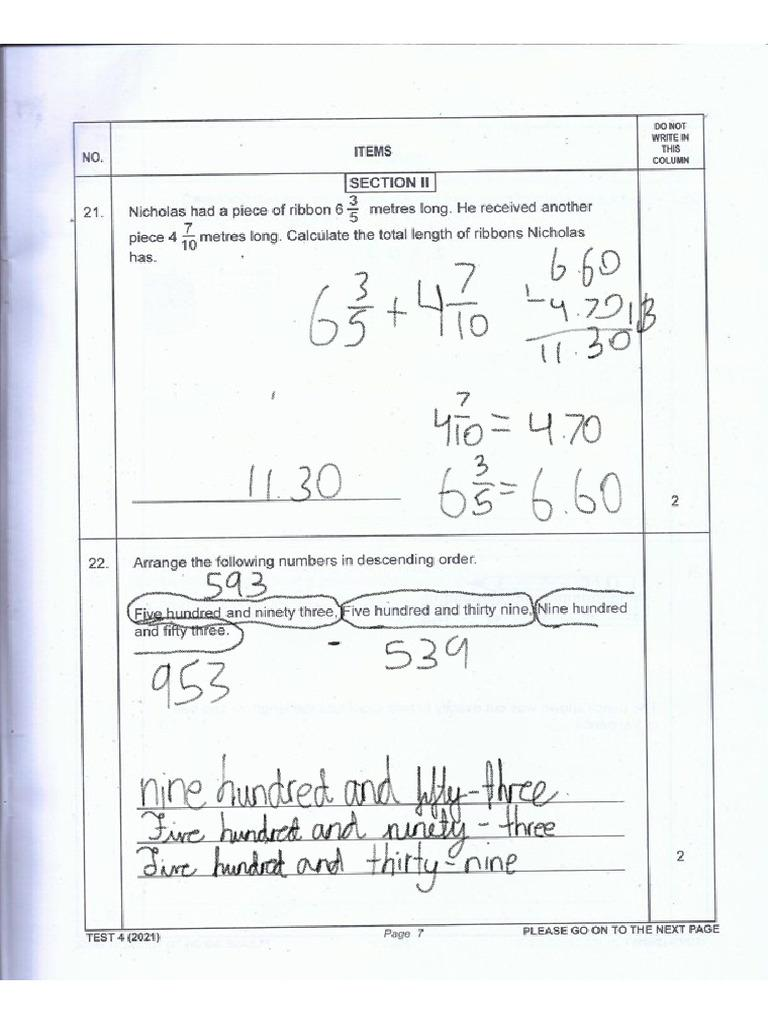 NO.
ITEMS
DO NOT
WRITE IN
THIS
COLUMN
SECTION II
21. Nicholas had a piece of ribbon 6 3/5 metres long. He received another
piece 4 7/10 metres long. Calculate the total length of ribbons Nicholas
has.
6 3/5 + 4 7/10
6.60
4.70
11.30
4 7/10 = 4.70
6 3/5 = 6.60
11.30
2
22. Arrange the following numbers in descending order.
593
Five hundred and ninety three, Five hundred and thirty nine, Nine hundred
and fifty three.
953
539
nine hundred and fifty-three
Five hundred and ninety-three
Five hundred and thirty-nine
2
TEST 4 (2021)
Page 7
PLEASE GO ON TO THE NEXT PAGE